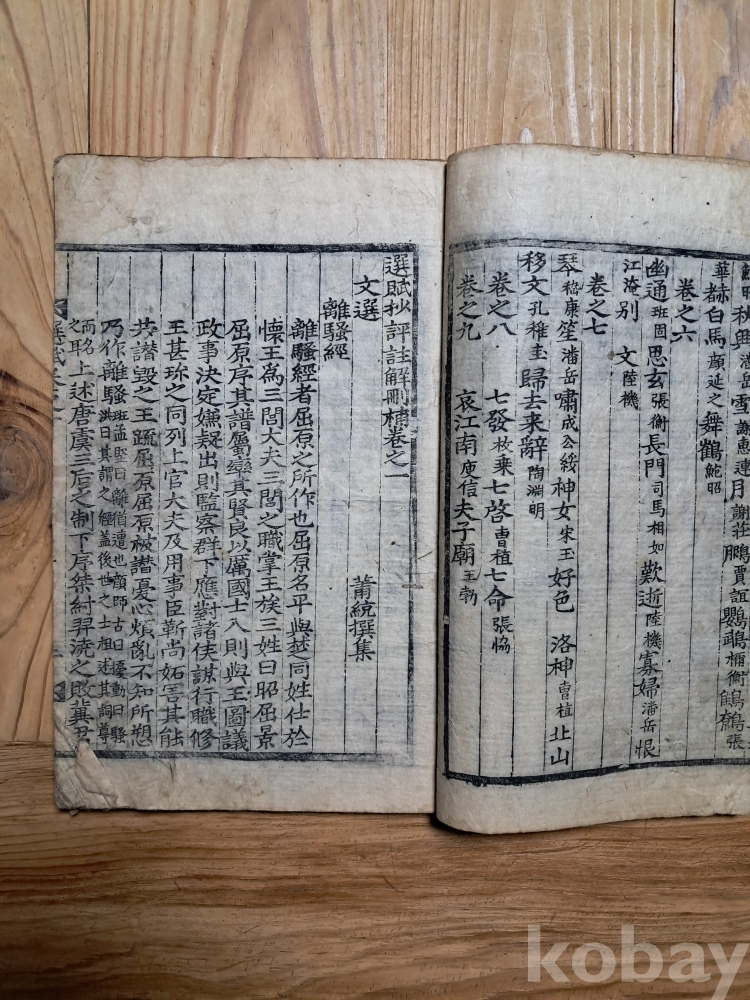 秋興潘岳雪謝惠連月謝莊鵩賈誼鸚鵡禰衡鷦鷯張
華赭白馬顔延之舞鶴鮑昭
卷之六
幽通班固思玄張衡長門司馬相如歎逝陸機寡婦潘岳恨
江淹别 文陸機
卷之七
琴嵇康笙潘岳嘯成公綏神女宋玉好色 洛神曺植北山
移文孔稚圭歸去来辭陶淵明
卷之八 七發枚乗七啓曺植七命張協
卷之九 哀江南庾信夫子廟王勃
選賦抄評註解刪補卷之一
文選 蕭統撰集
離騷經
離騷經者屈原之所作也屈原名平與楚同姓仕於
懷王為三閭大夫三閭之職掌王族三姓曰昭屈景
屈原序其譜屬率其賢良以厲國士入則與王圖議
政事決定嫌疑出則監察群下應對諸侯謀行職修
王甚珍之同列上官大夫及用事臣靳尚妬害其能
共譖毁之王䟽屈原屈原被譖憂心煩亂不知所愬
乃作離騷班孟堅曰離猶遭也顔師古曰擾動曰騷洪曰其謂之經盖後世之士祖述其詞尊
而名之耳上述唐虞三后之制下序桀紂羿澆之敗冀君
kobay